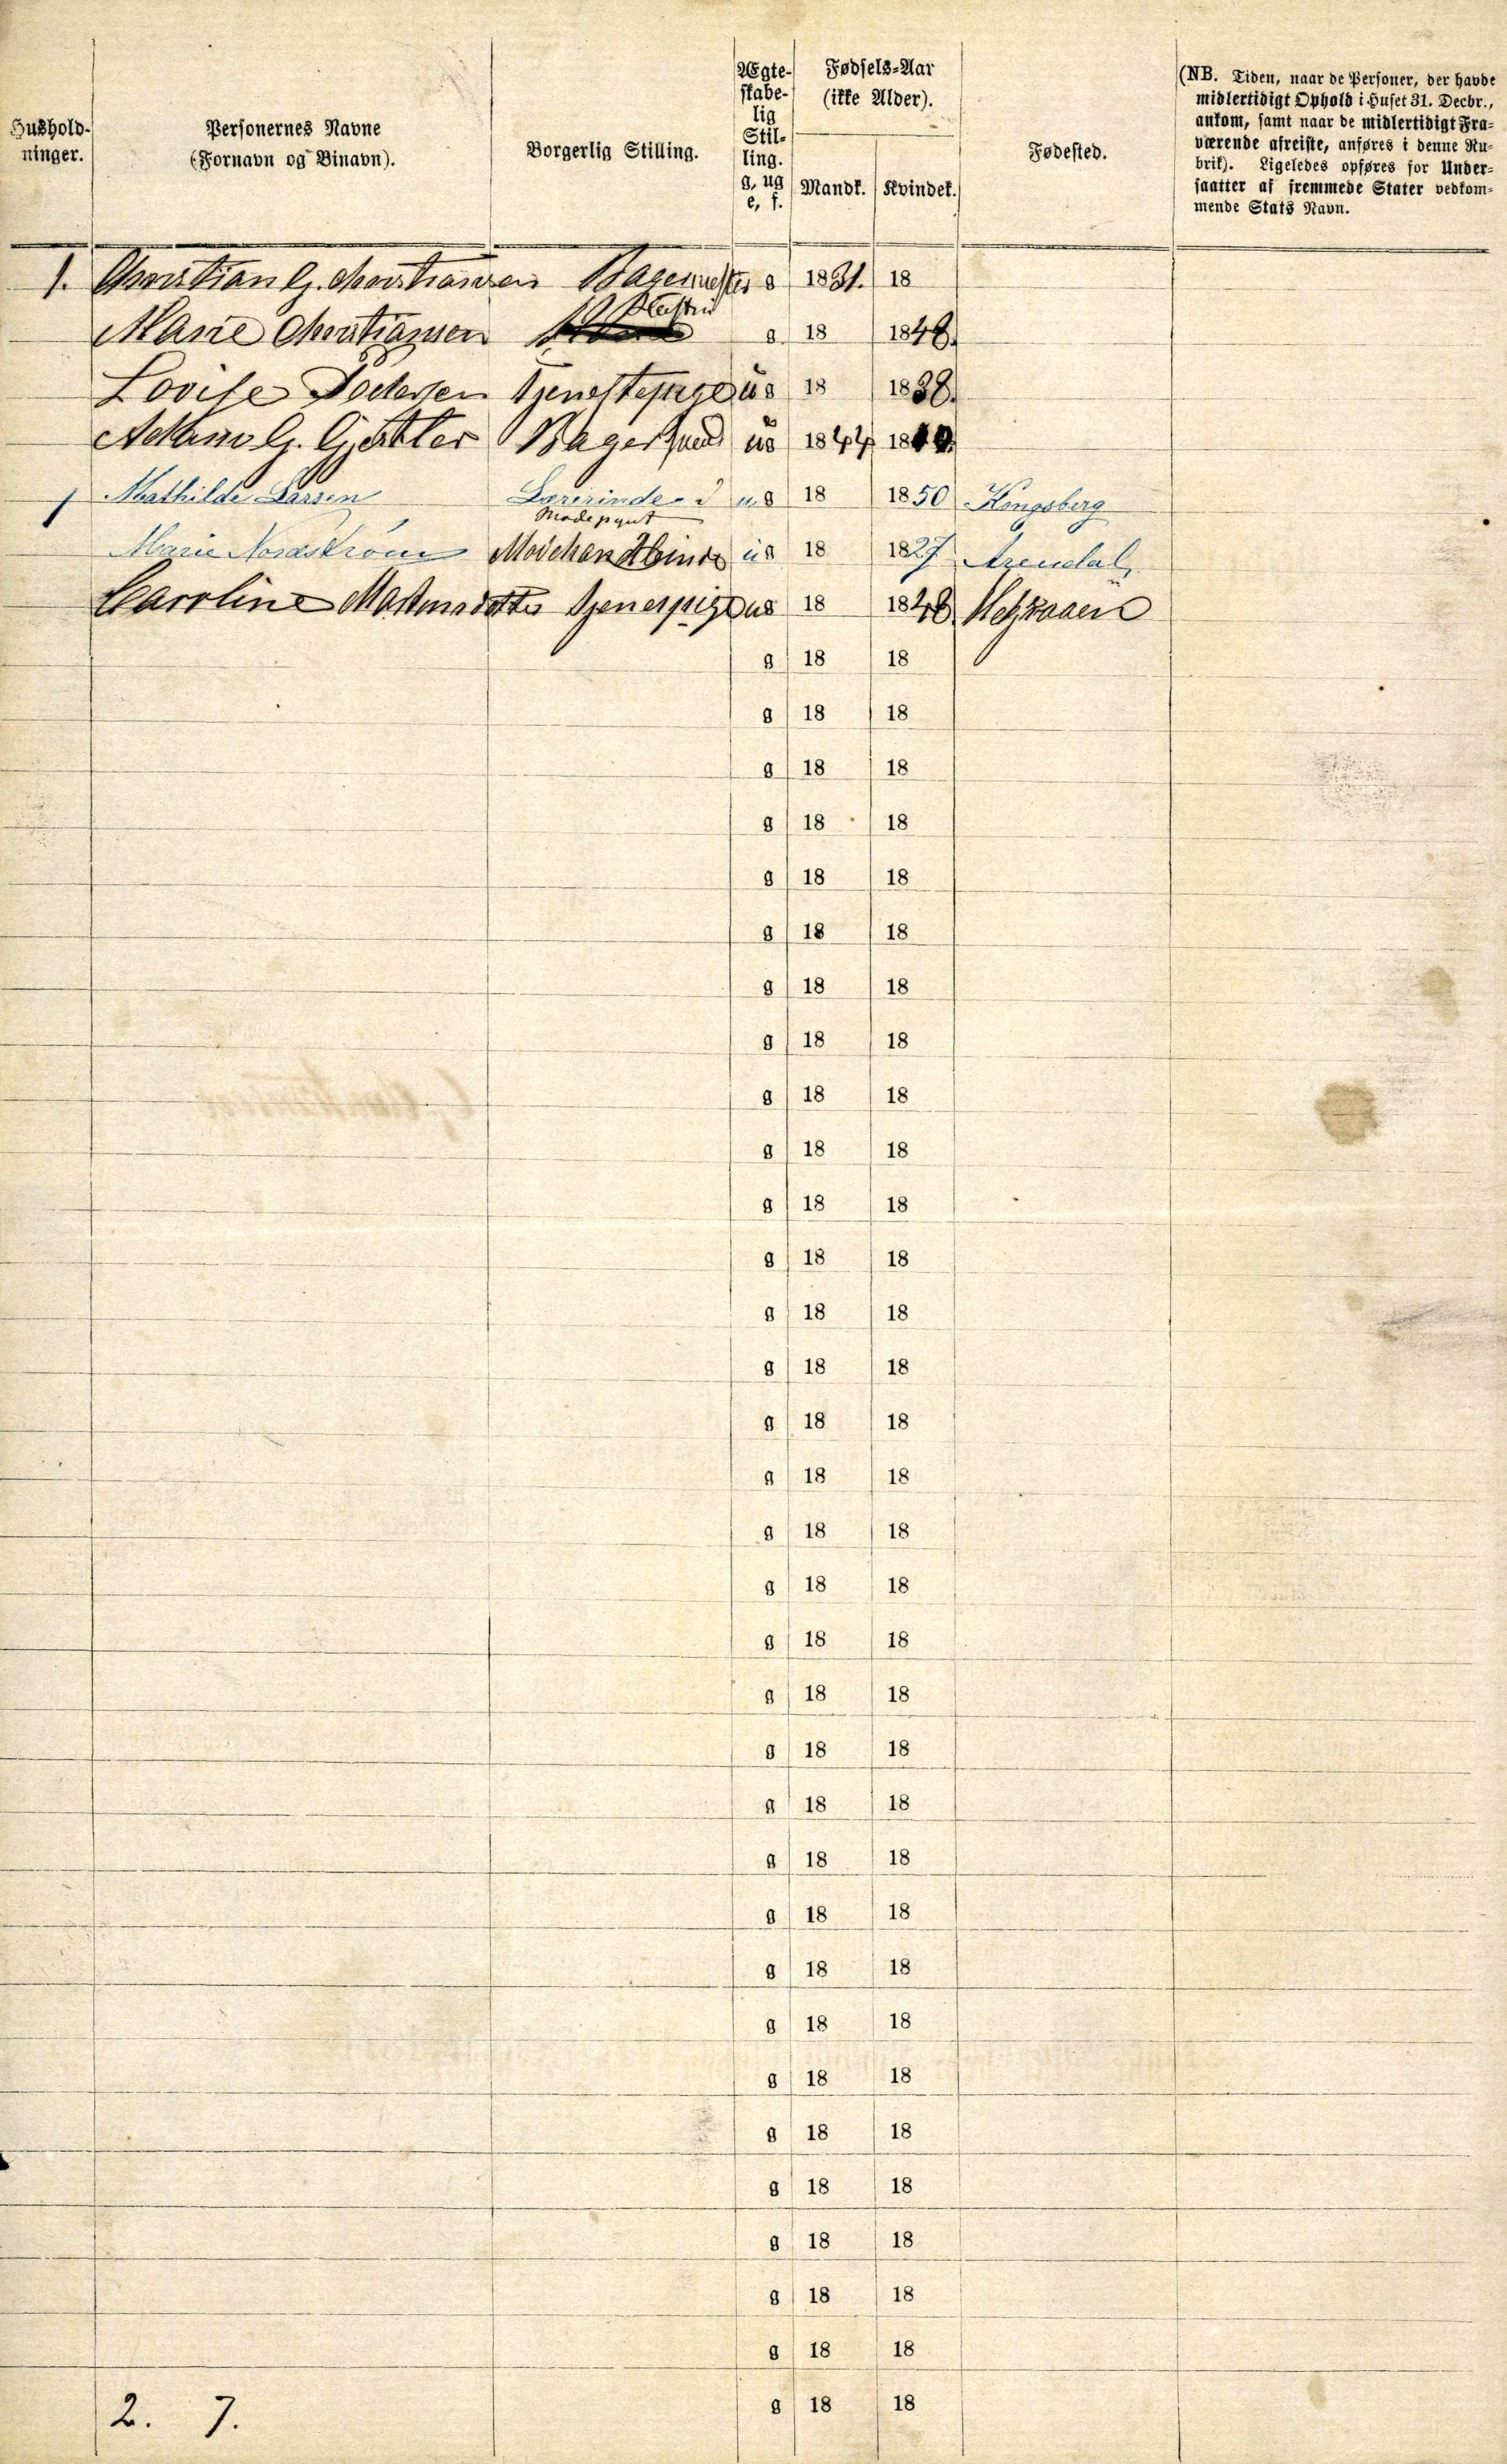 Hushold-
ninger.
Personernes Navne
(Fornavn og Binavn).
Borgerlig Stilling.
Ægte-
skabe-
lig
Stil-
ling.
g, ug
e, f.
Fødsels-Aar
(ikke Alder).
Mandk. Kvindek.
Fødested.
(NB. Tiden, naar de Personer, der havde
midlertidigt Ophold i Huset 31. Decbr.,
ankom, samt naar de midlertidigt Fra-
værende afreiste, anføres i denne Ru-
brik). Ligeledes opføres for Under-
saatter af fremmede Stater vedkom-
mende Stats Navn.
1. Christian G. Christiansen Bagermester g 1831. 18
Marie Christiansen g 18 1848.
Lovise Pedersen Tjenestepige ug 18 1838.
Adam G. Gjertler Bagersvend ug 1844 18
1 Mathilde Larsen Lærerinde i ug 18 1850 Kongsberg
Modepynt
Marie Nordström Modehandlerinde ug 18 1827 Arendal,
Caroline tjenespige ug 18 1848
g 18 18
g 18 18
g 18 18
g 18 18
g 18 18
g 18 18
g 18 18
g 18 18
g 18 18
g 18 18
g 18 18
g 18 18
g 18 18
g 18 18
g 18 18
g 18 18
g 18 18
g 18 18
g 18 18
g 18 18
g 18 18
g 18 18
g 18 18
g 18 18
g 18 18
g 18 18
g 18 18
g 18 18
g 18 18
g 18 18
g 18 18
g 18 18
g 18 18
2. 7. g 18 18